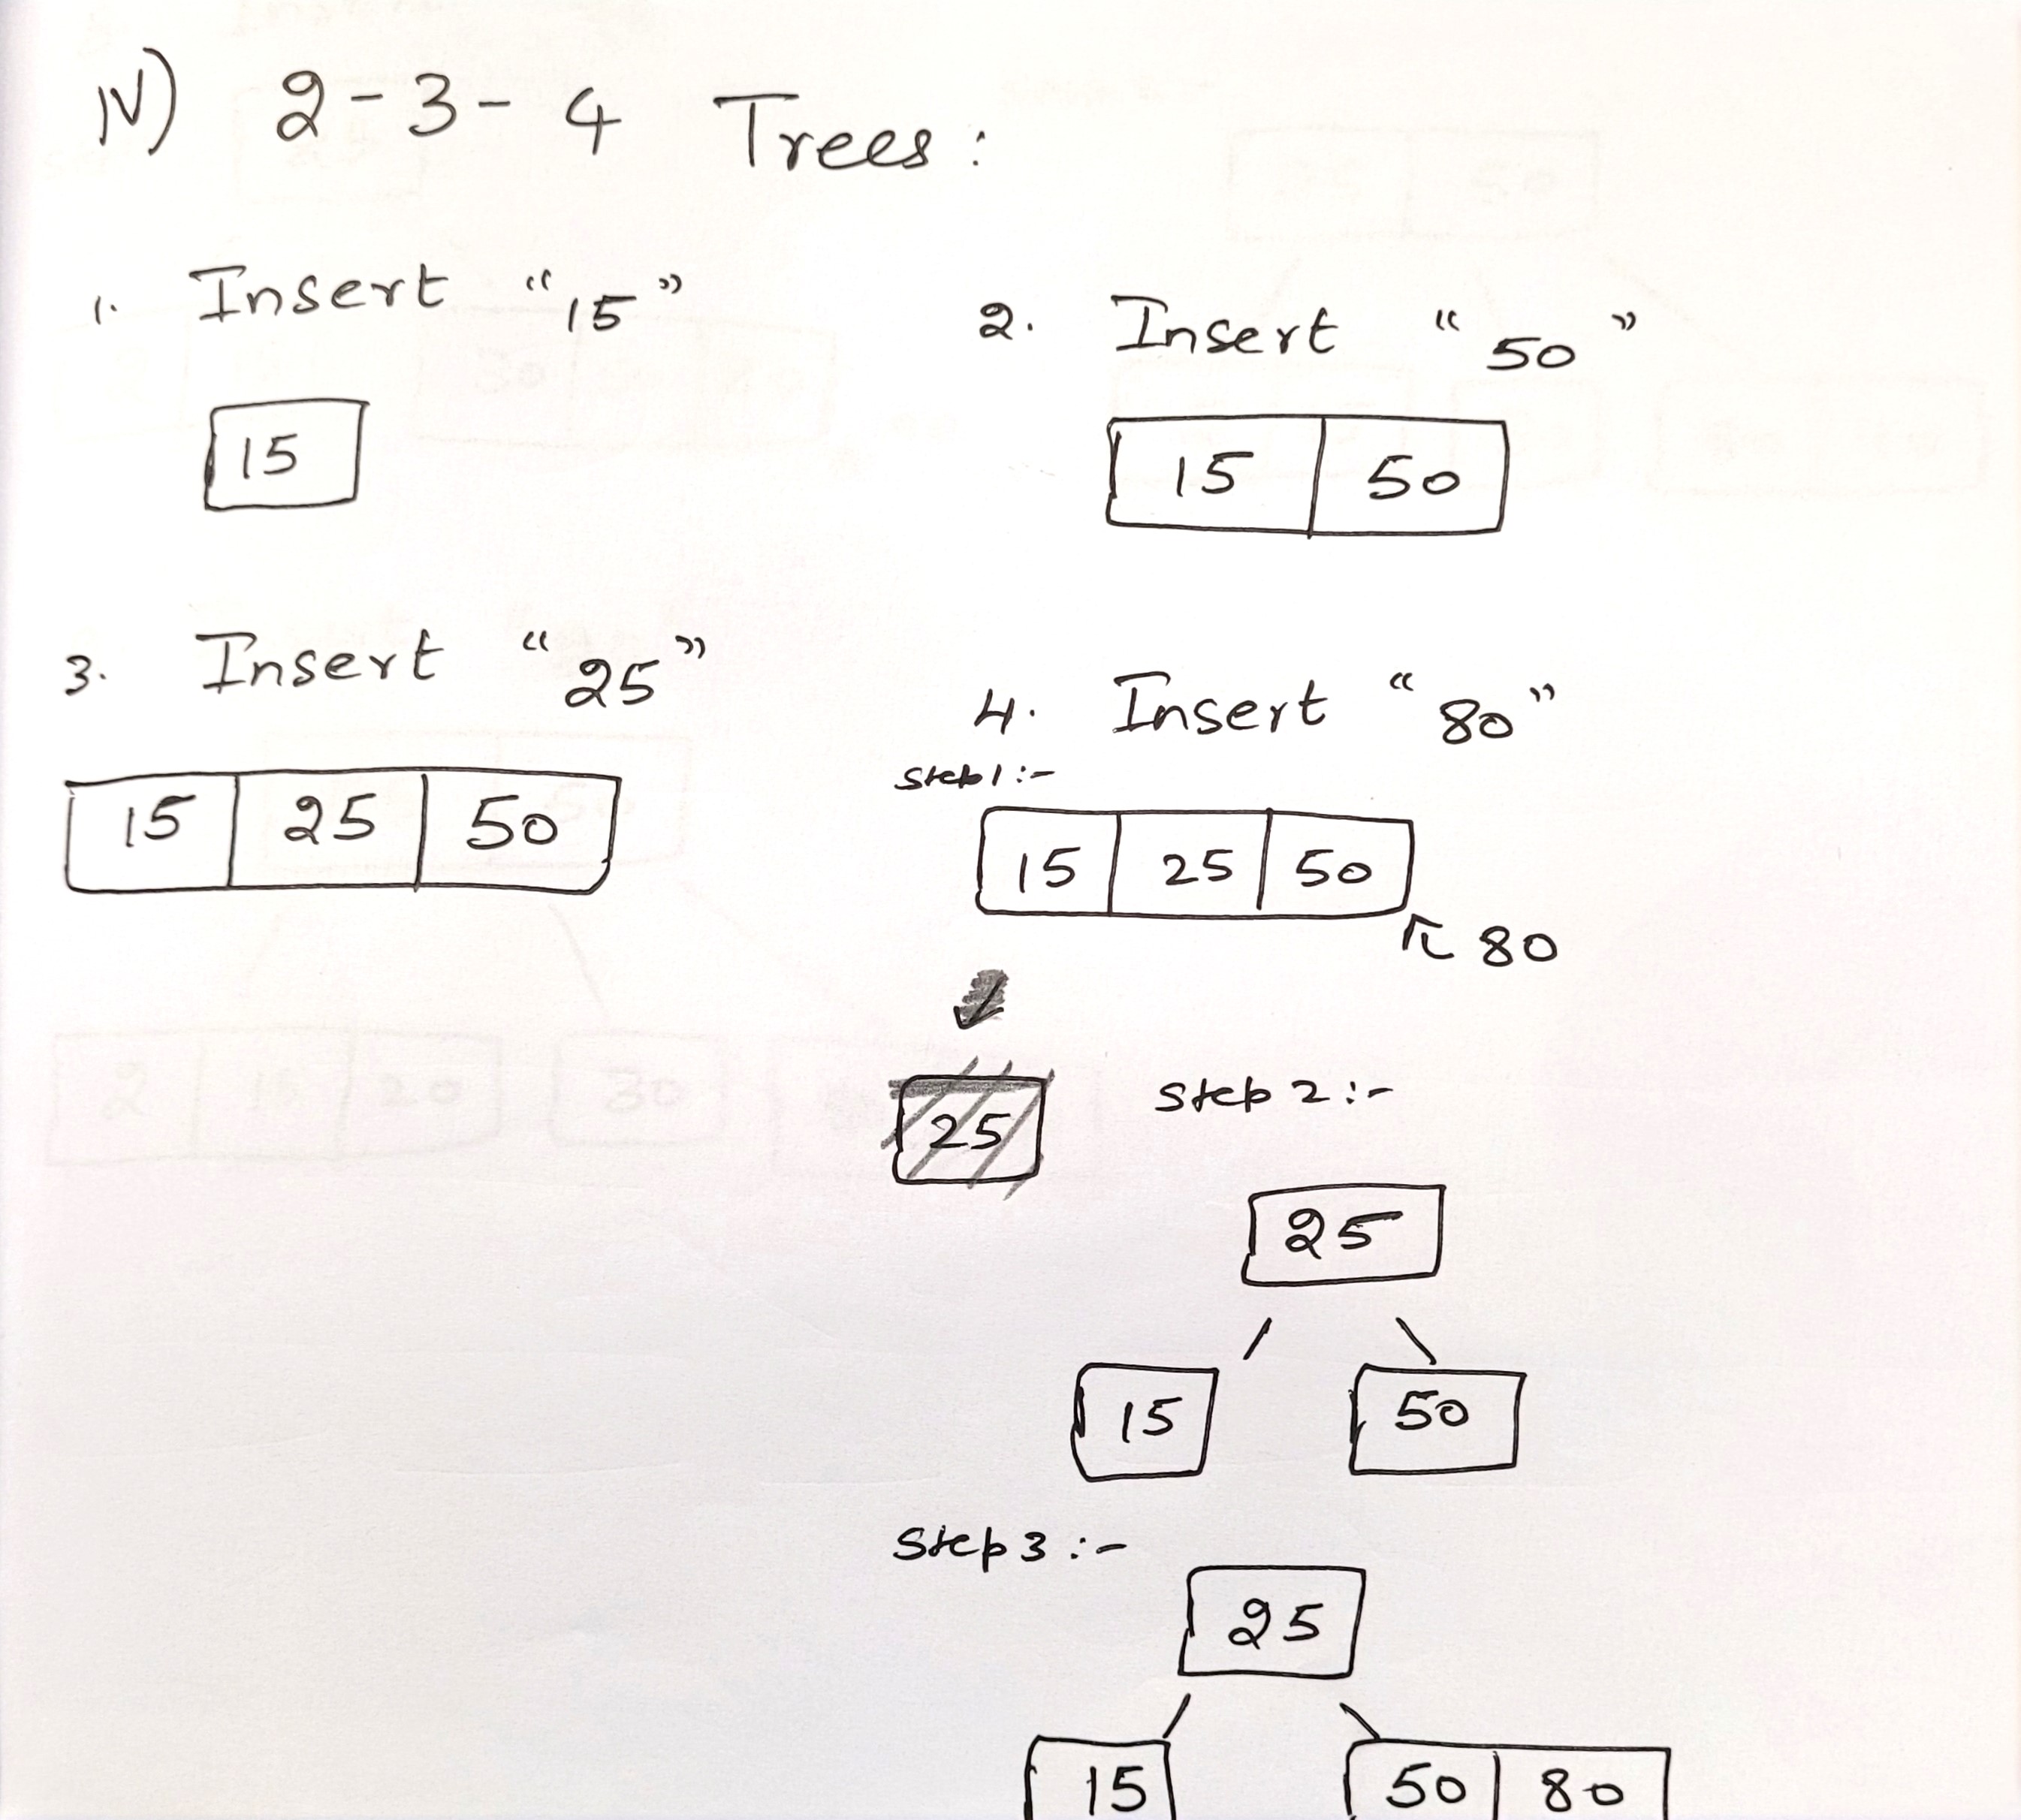 IV) 2-3-4 Trees:
1. Insert "15"
15
2. Insert "50"
15 50
3. Insert "25"
15 25 50
4. Insert "80"
Step 1 :-
15 25 50
80
25
Step 2 :-
25
15 50
Step 3 :-
25
15 50 80